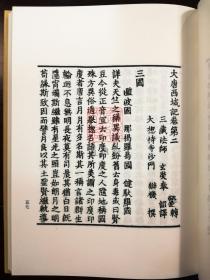 大唐西域記卷第二
三藏法師 玄奘奉 詔譯
大總持寺沙門 辯機 撰
三國
濫波國 那揭羅曷國 健馱羅國
詳夫天竺之稱異議糺紛舊云身毒或曰賢
豆今從正音宜云印度印度之人隨地稱國
殊方異俗遙舉總名語其所美謂之印度印
度者唐言月月有多名斯其一稱言諸羣生
輪迴不息無明長夜莫有司晨其猶白日既
隱宵燭斯繼雖有星光之照豈如朗月之明
苟緣斯致因而譬月良以其土聖賢繼軌導